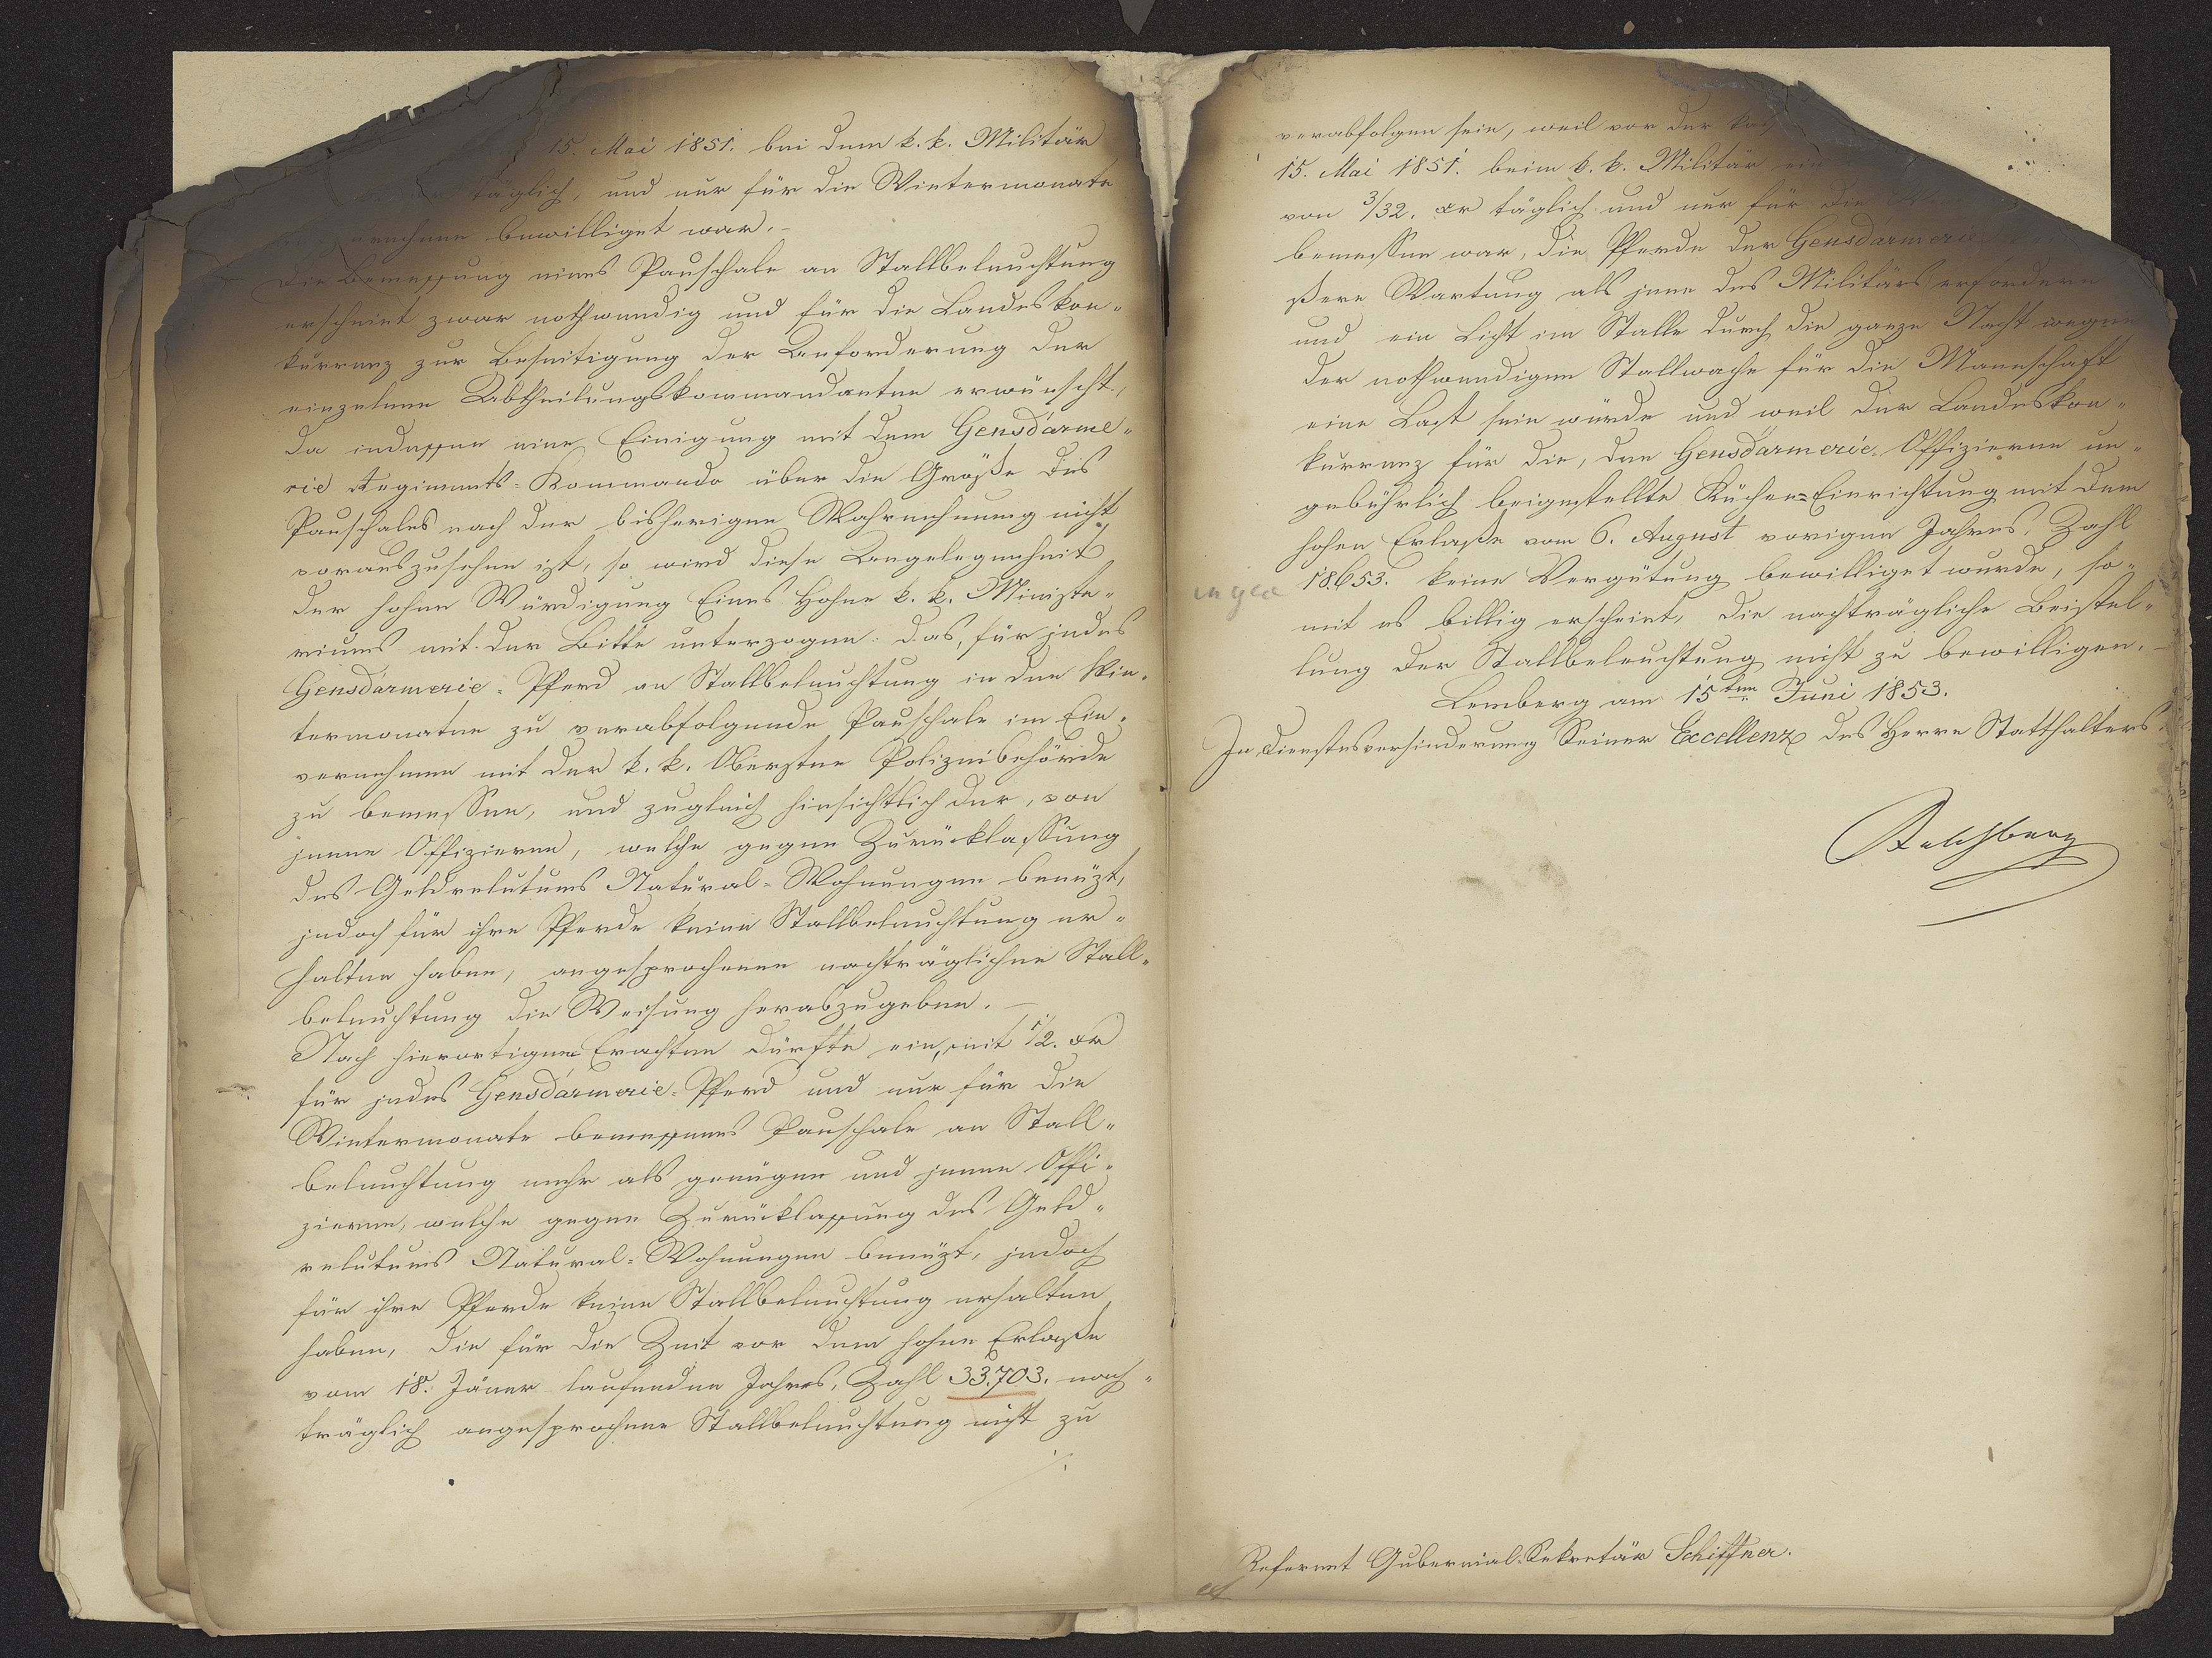 15. Mai 1851. bei dem k. k. Militär
täglich, und nur für die Wintermonate
bewilliget war.–
Die Bemessung eines Pauschale an Stallbeleuchtung
erscheint zwar nothwendig und für die Landeskon-
kurrenz zur Beseitigung der Anforderung der
einzelnen Abtheilungskommandanten erwünscht,
da indessen eine Einigung mit dem Gensdarme-
rie Regiments-Kommando über die Größe des
Pauschales nach der bisherigen Wahrnehmung nicht
vorauszusehen ist, so wird diese Angelegenheit
der hohen Würdigung Eines Hohen k. k. Ministe-
riums mit der Bitte unterzogen: das, für jedes
Gensdarmerie-Pferd an Stallbeleuchtung in den Win-
termonaten zu verabfolgende Pauschale im Ein-
vernehmen mit der k. k. Obersten Polizeibehörde
zu bemessen, und zugleich hinsichtlich der, von
jenen Offizieren, welche gegen Zurücklassung
des Geldrelutums Natural-Wohnungen benüzt,
jedoch für ihre Pferde keine Stallbeleuchtung er-
halten haben, angesprochenen nachträglichen Stall-
beleuchtung die Weisung herabzugeben.–
Nach hierortigen Erachten dürfte ein, mit 1/2. xr
für jedes Gensdarmerie-Pferd und nur für die
Wintermonate bemessenes Pauschale an Stall-
beleuchtung mehr als genügen und jenen Offi-
zieren, welche gegen Zurücklassung des Geld-
relutums Natural-Wohnungen benüzt, jedoch
für ihre Pferde keine Stallbeleuchtung erhalten
haben, die für die Zeit vor dem hohen Erlaße
vom 18. Jäner laufenden Jahres, Zahl 33.703. nach-
träglich angesprochene Stallbeleuchtung nicht zu
verabfolgen sein, weil vor der
15. Mai 1851. beim k. k. Militär ein
von 3/32. xr täglich und nur für die
bemessen war, die Pferde der Gensdarmerie
ßere Wartung als jene des Militärs erfordern
und ein Licht im Stalle durch die ganze Nacht wegen
der nothwendigen Stallwache für die Mannschaft
eine Last sein würde und weil der Landeskon-
kurrenz für die, den Gensdarmerie-Offizieren un-
gebührlich beigestellte Küchen-Einrichtung mit dem
hohen Erlaße vom 6. August vorigen Jahres, Zahl
18.653. keine Vergütung bewilliget wurde, so-
mit es billig erscheint, die nachträgliche Beistel-
lung der Stallbeleuchtung nicht zu bewilligen.–
Lemberg am 15ten Juni 1853.
In Dienstesverhinderung Seiner Excellenz des Herrn Statthalters.
Referent Gubernial-Sekretär Schiffner.